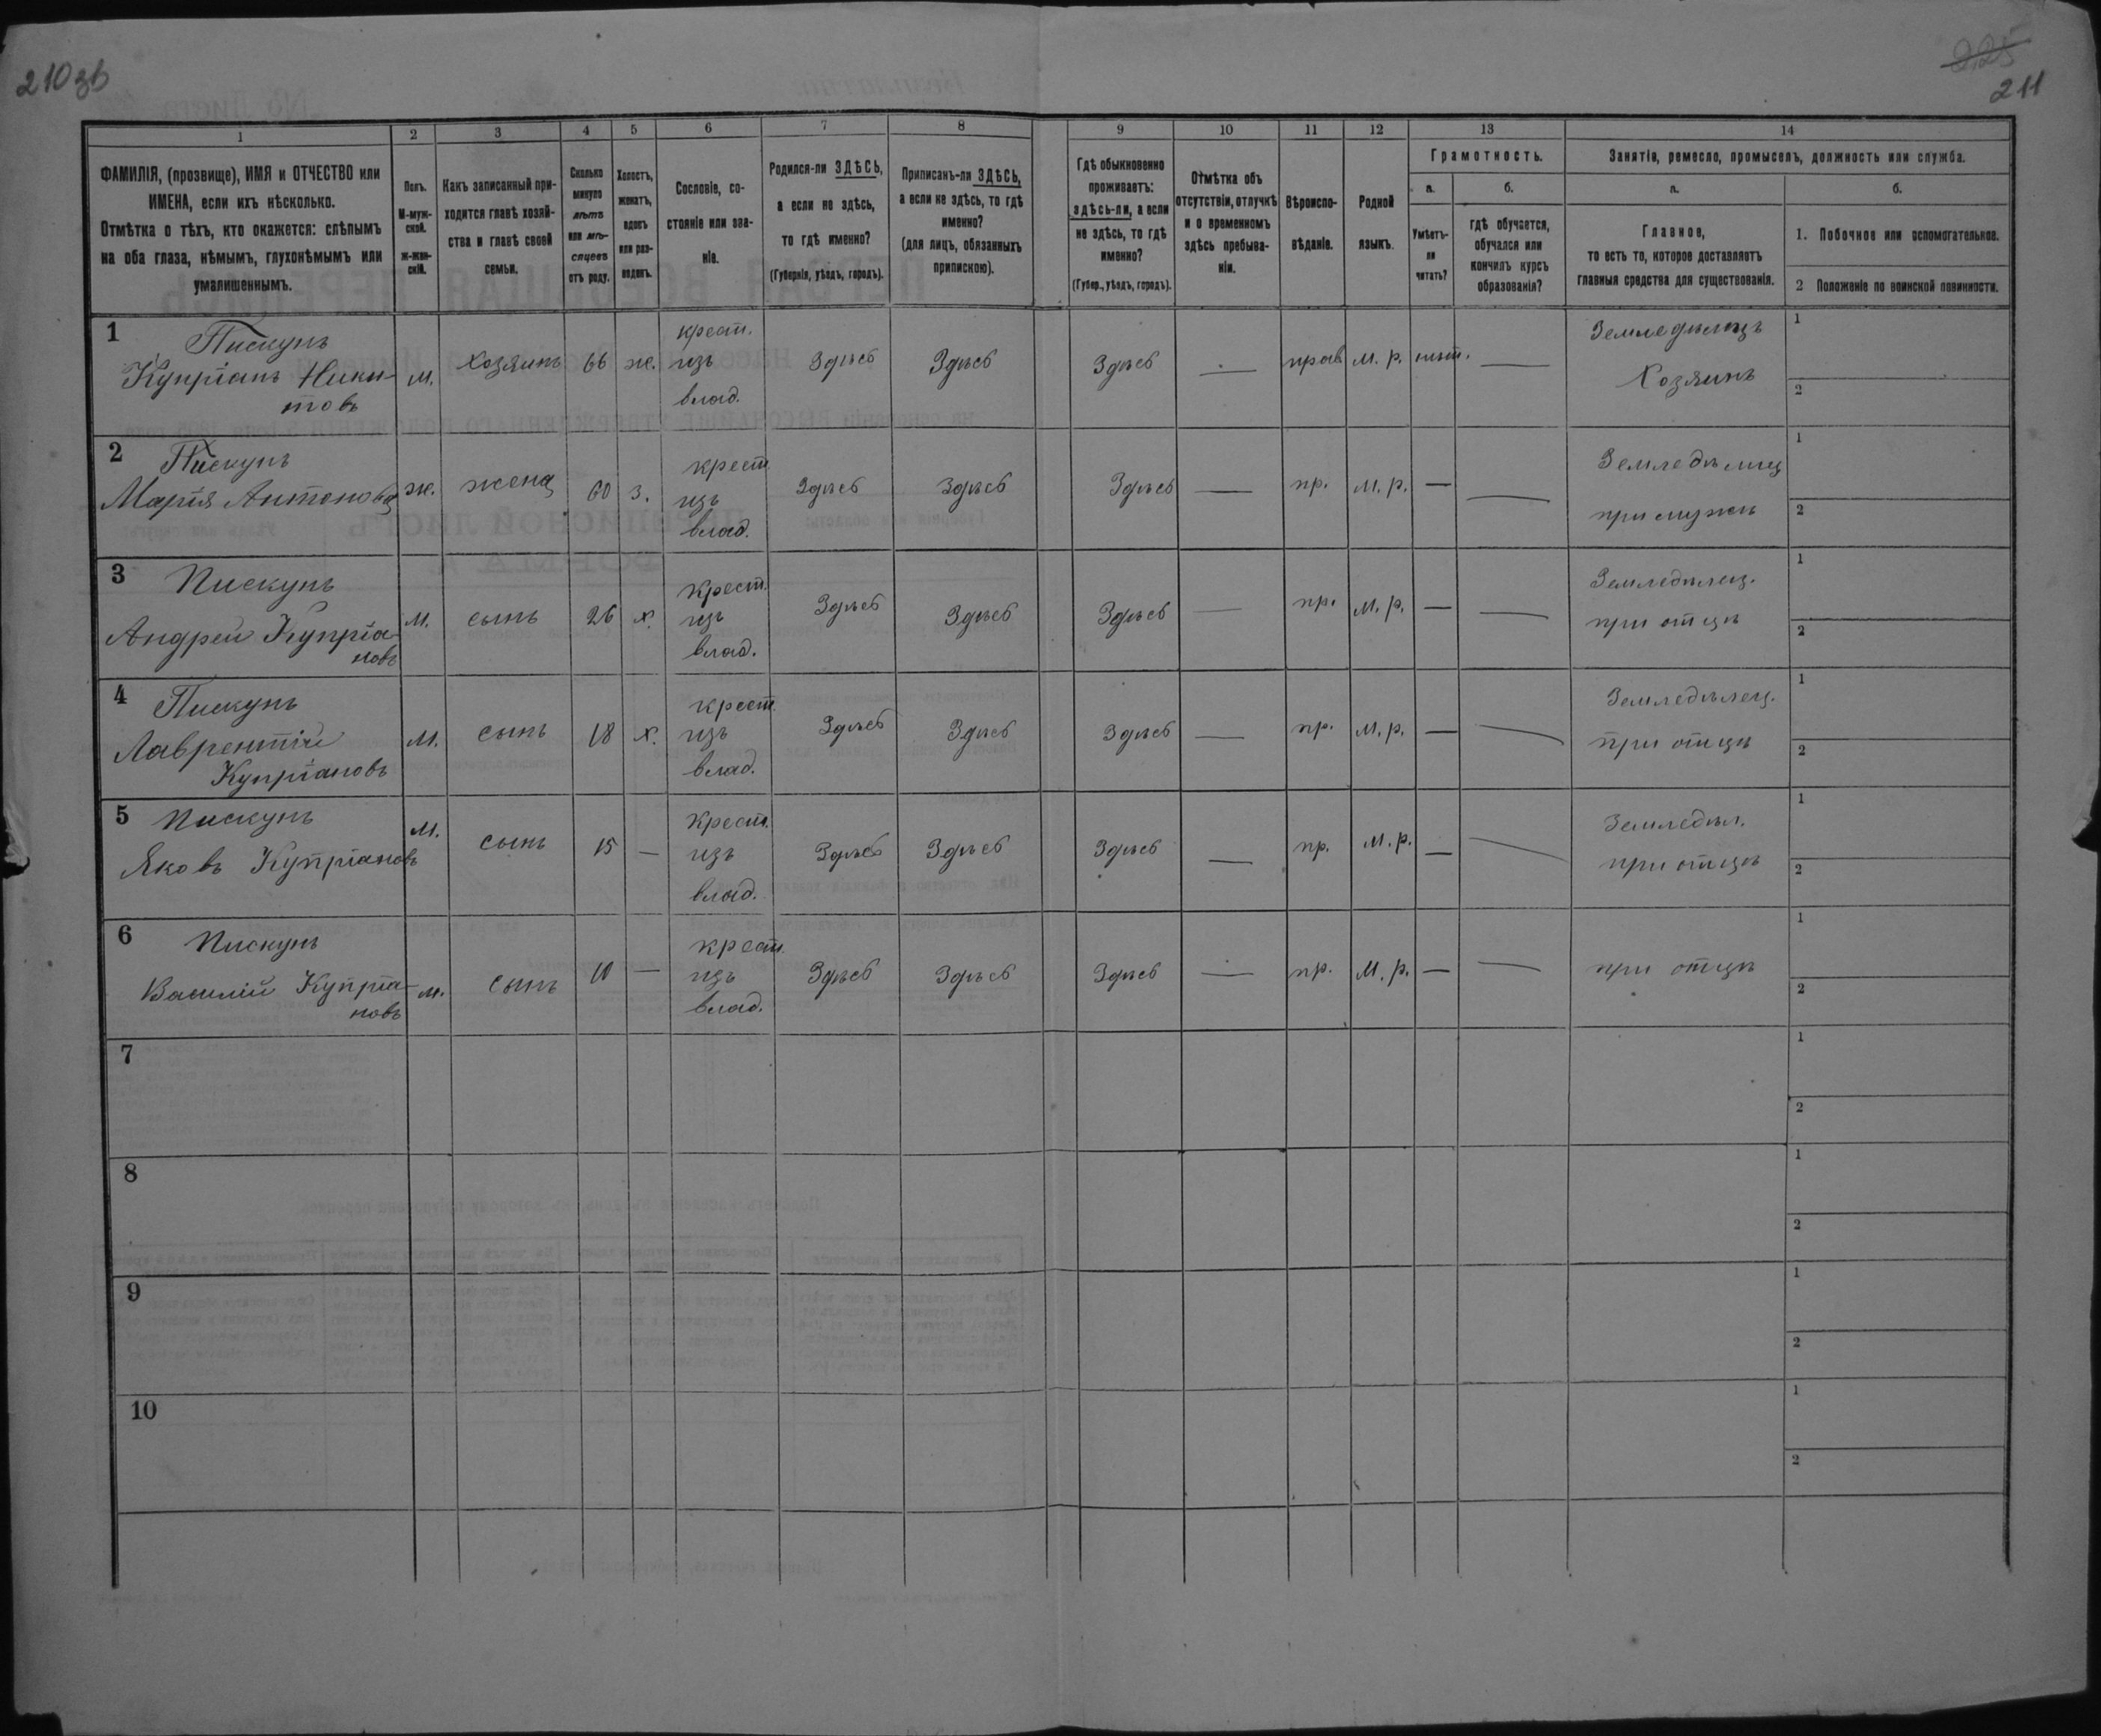 210зв
225
211
1
2
3
4
5
6
7
8
9
10
11
12
13
14
ФАМИЛІЯ, (прозвище), ИМЯ и ОТЧЕСТВО или
ИМЕНА, если ихъ нѣсколько.
Отмѣтка о тѣхъ, кто окажется: слѣпымъ
на оба глаза, нѣмымъ, глухонѣмымъ или
умалишеннымъ.
Полъ.
М-муж-
ской.
Ж-жен-
скій.
Какъ записанный при-
ходится главѣ хозяй-
ства и главѣ своей
семьи.
Сколько
минуло
лѣтъ
или мѣ-
сяцевъ
отъ роду.
Холостъ,
женатъ,
вдовъ
или раз-
веденъ.
Сословіе, со-
стояніе или зва-
ніе.
Родился-ли ЗДѢСЬ,
а если не здѣсь,
то гдѣ именно?
(Губернія, уѣздъ, городъ).
Приписанъ-ли ЗДѢСЬ,
а если не здѣсь, то гдѣ
именно?
(для лицъ, обязанныхъ
припискою).
Гдѣ обыкновенно
проживаетъ:
здѣсь-ли, а если
не здѣсь, то гдѣ
именно?
(Губер., уѣздъ, городъ).
Отмѣтка объ
отсутствіи, отлучкѣ
и о временномъ
здѣсь пребыва-
ніи.
Вѣроиспо-
вѣданіе.
Родной
языкъ.
Грамотность.
а.
Умѣетъ-
ли
читать?
б.
гдѣ обучается,
обучался или
кончилъ курсъ
образованія?
Занятіе, ремесло, промыселъ, должность или служба.
а.
Главное,
то есть то, которое доставляетъ
главныя средства для существованія.
б.
1. Побочное или вспомогательное.
2 Положеніе по воинской повинности.
1 Пискунъ
Купріанъ Ники-
товъ
М.
Хозяинъ
66
ж.
крест.
изъ
влад.
Здѣсь
Здѣсь
Здѣсь
—
прав
м. р.
нѣт.
—
Земледѣлецъ
Хозяинъ
1
2
2 Пискунъ
Марія Антонова
ж.
жена
60
з.
крест.
изъ
влад.
Здѣсь
Здѣсь
Здѣсь
—
пр.
м. р.
—
—
Земледѣлец
при мужѣ
1
2
3 Пискунъ
Андрей Купріа-
новъ
М.
сынъ
26
х.
крест.
изъ
влад.
Здѣсь
Здѣсь
Здѣсь
—
пр.
м. р.
—
—
Земледѣлец.
при отцѣ
1
2
4 Пискунъ
Лаврентій
Купріановъ
М.
сынъ
18
х.
крест.
изъ
влад.
Здѣсь
Здѣсь
Здѣсь
—
пр.
м. р.
—
—
Земледѣлец.
при отцѣ
1
2
5 Пискунъ
Яковъ Купріановъ
М.
сынъ
15
—
крест.
изъ
влад.
Здѣсь
Здѣсь
Здѣсь
—
пр.
м. р.
—
—
Земледѣл.
при отцѣ
1
2
6 Пискунъ
Василій Купріа-
новъ
М.
сынъ
10
—
крест.
изъ
влад.
Здѣсь
Здѣсь
Здѣсь
—
пр.
м. р.
—
—
при отцѣ
1
2
7
1
2
8
1
2
9
1
2
10
1
2